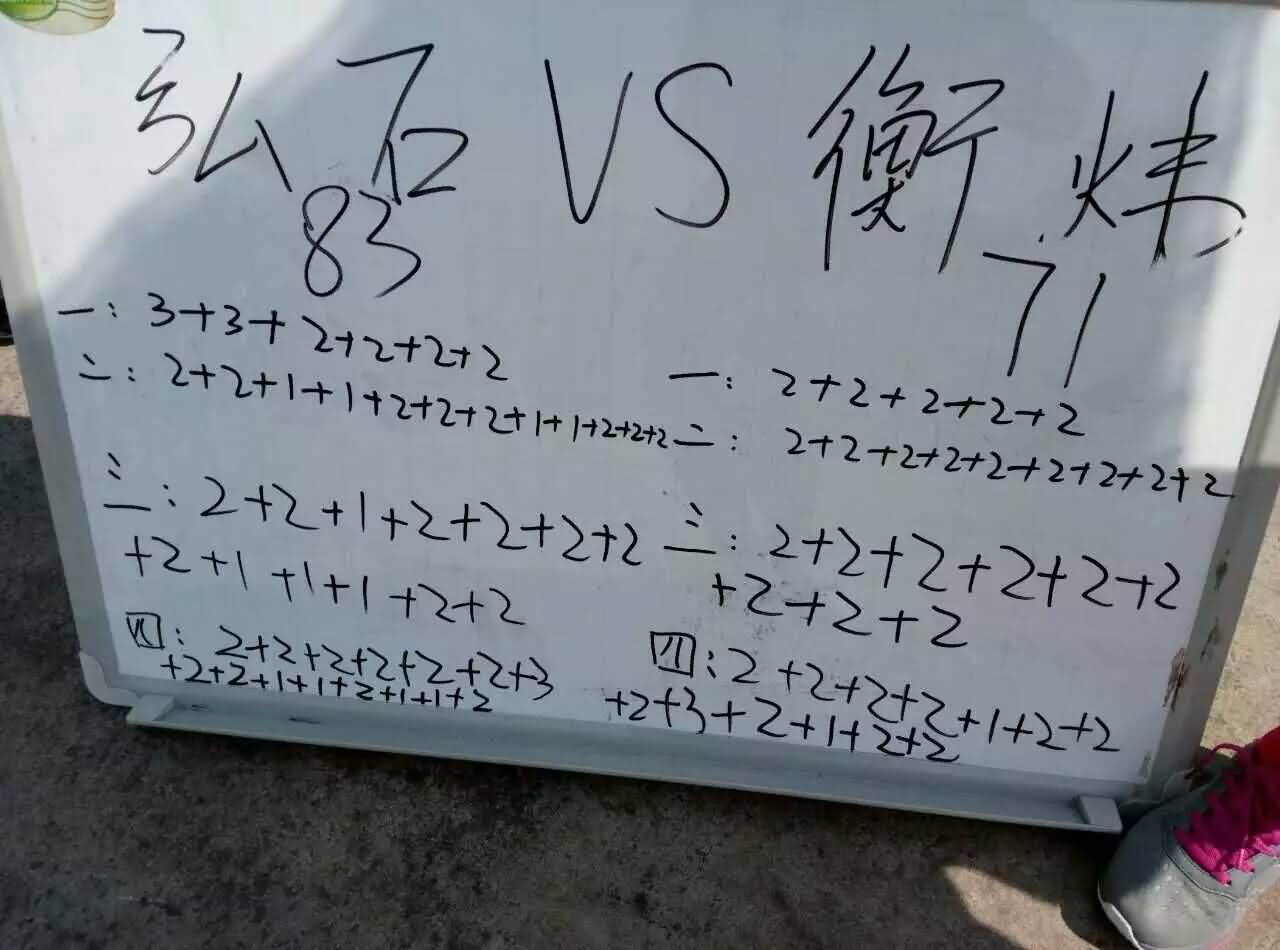 弘石 VS 衡炜
83
71
一: 3+3+2+2+2+2
二: 2+2+1+1+2+2+2+1+1+2+2+2
三: 2+2+1+2+2+2+2
+2+1+1+1+2+2
四: 2+2+2+2+2+2+3
+2+2+1+1+2+1+1+2
一: 2+2+2+2+2
二: 2+2+2+2+2+2+2+2+2
三: 2+2+2+2+2+2
+2+2+2
四: 2+2+2+2+1+2+2
+2+3+2+1+2+2